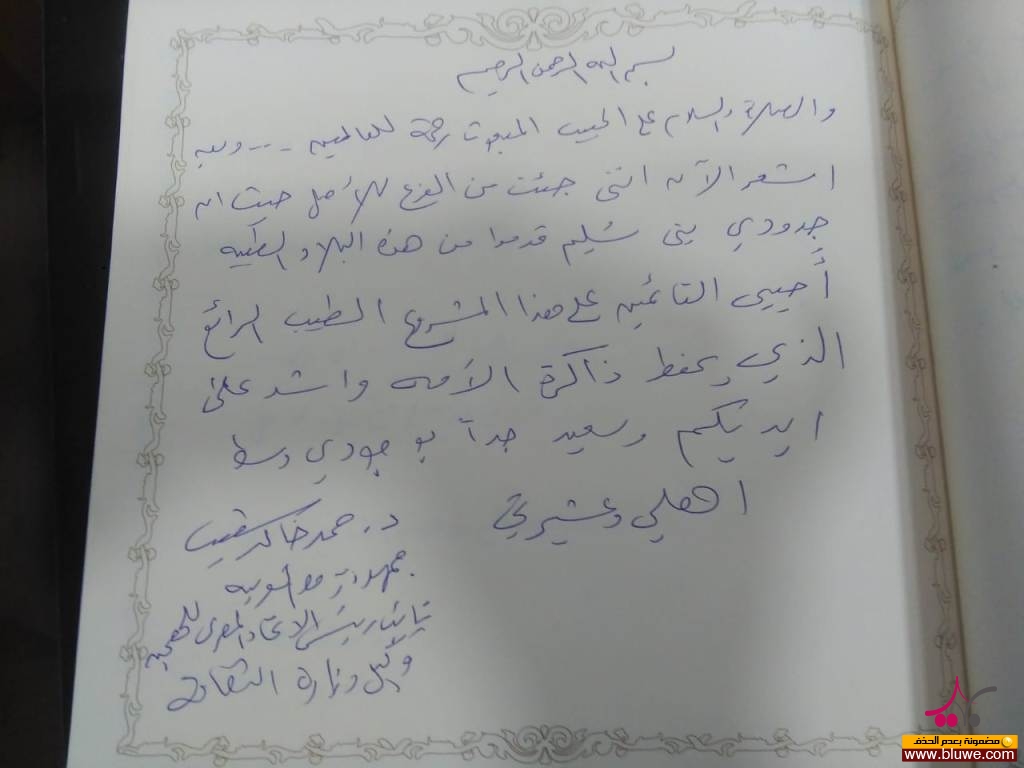 بسم الله الرحمن الرحيم
والصلاة والسلام على الحبيب المبعوث رحمة للعالمين ... وبعد
اشعر الآن انني جئت من الفرع للأصل حيث ان
جدودي بني سُليم قدموا من هذه البلاد الطيبه
أحيي القائمين على هذا المشروع الطيب الرائع
الذي يحفظ ذاكرة الأمه واشد على
ايديكم وسعيد جداً بوجودي وسط
اهلي وعشيرتي
د. حمد خالد شعيب
جمهورية مصر العربية
نائب رئيس الاتحاد المصرى
وكيل وزارة الثقافة
مضمونة بعدم الحذف
www.bluwe.com